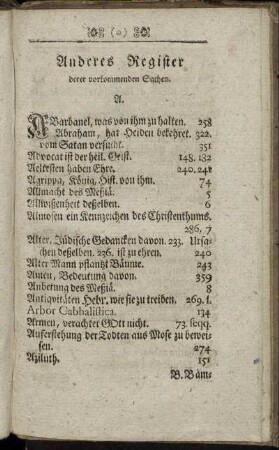 (o)
Anderes Register
derer vorkommenden Sachen.
A.
ABarbanel, was von ihm zu halten. 258
Abraham, hat Heiden bekehret. 322.
vom Satan versucht. 351
Advocat ist der heil. Geist. 148. 182
Aeltesten haben Ehre. 240. 241
Agrippa, König, Hist. von ihm. 74
Allmacht des Meßiä. 5
Allwißenheit deßelben. 6
Almosen ein Kennzeichen des Christenthums.
286, 7
Alter, Jüdische Gedancken davon. 233. Ursa-
chen deßelben. 236. ist zu ehren. 240
Alter Mann pflantzt Bäume. 243
Amen, Bedeutung davon. 359
Anbetung des Meßiä. 8
Antiquitäten Hebr. wie sie zu treiben. 269. f.
Arbor Cabbalistica. 134
Armen, verachtet GOtt nicht. 73. seqq.
Auferstehung der Todten aus Mose zu bewei-
sen. 274
Aziluth. 151
B. Bäm-